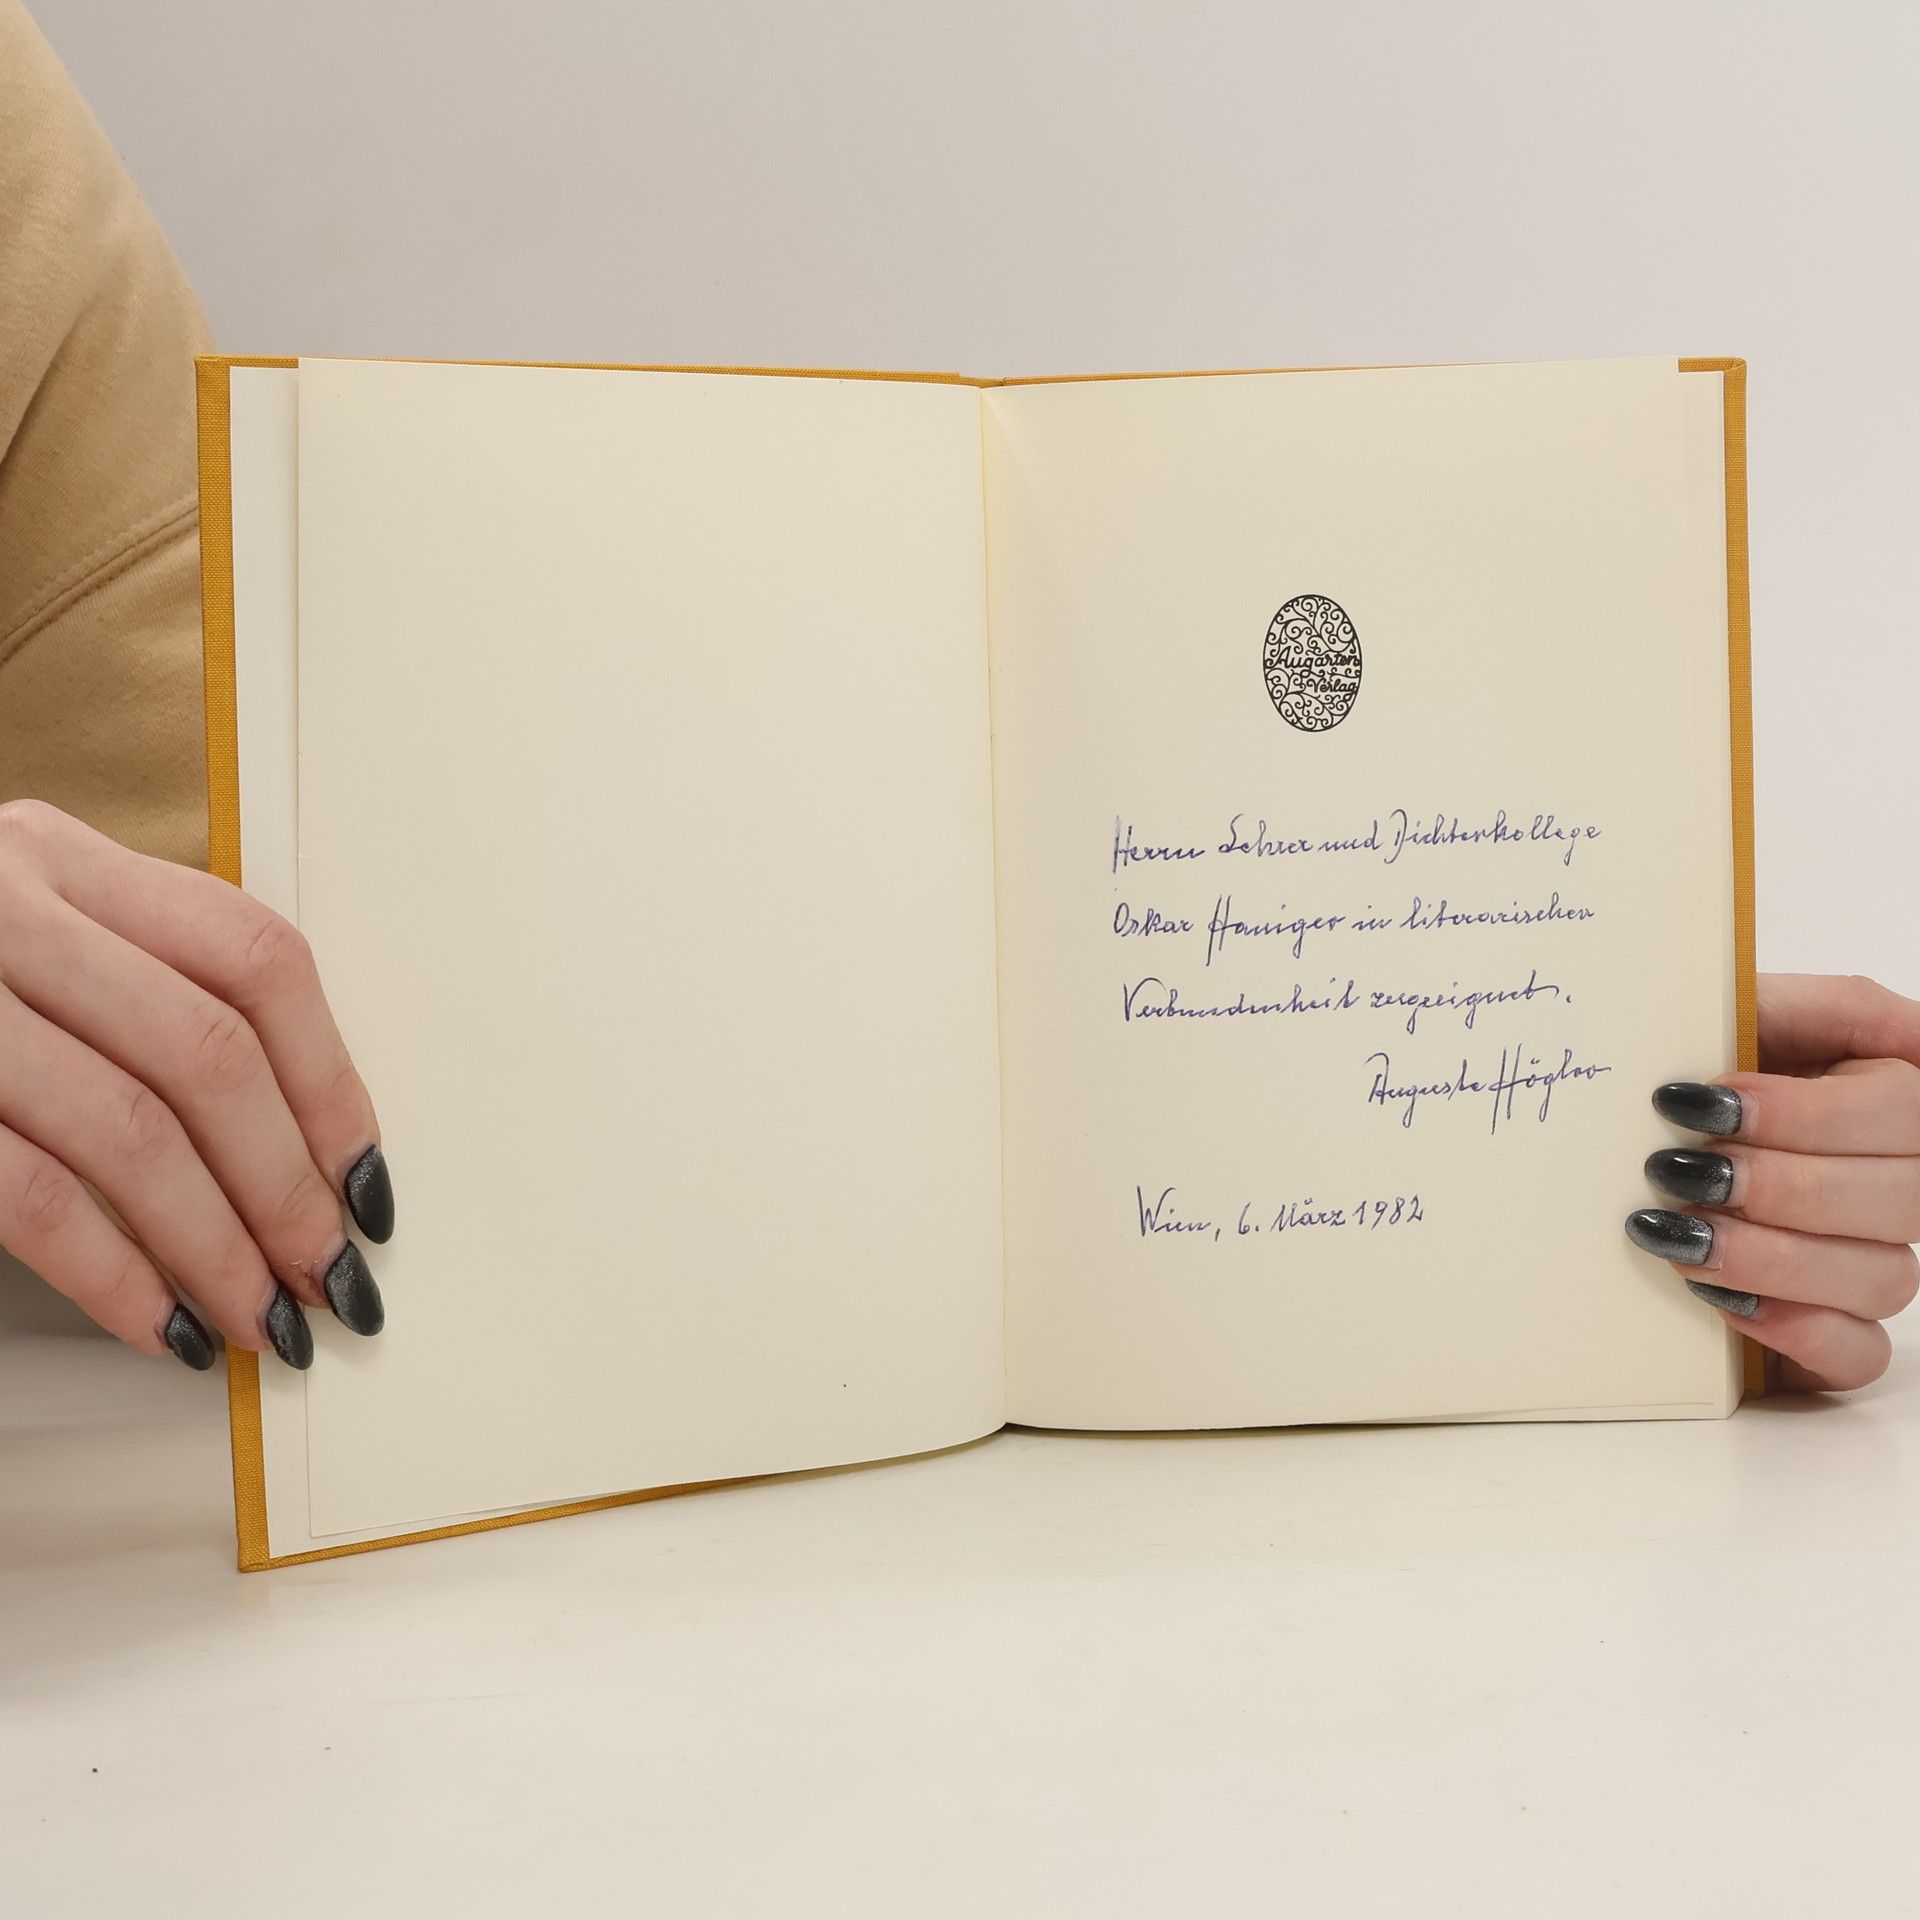 Augarten
Verlag
Herrn Lehrer und Dichterkollege
Oskar Haniger in literarischer
Verbundenheit zugeeignet.
Auguste Högler
Wien, 6. März 1982